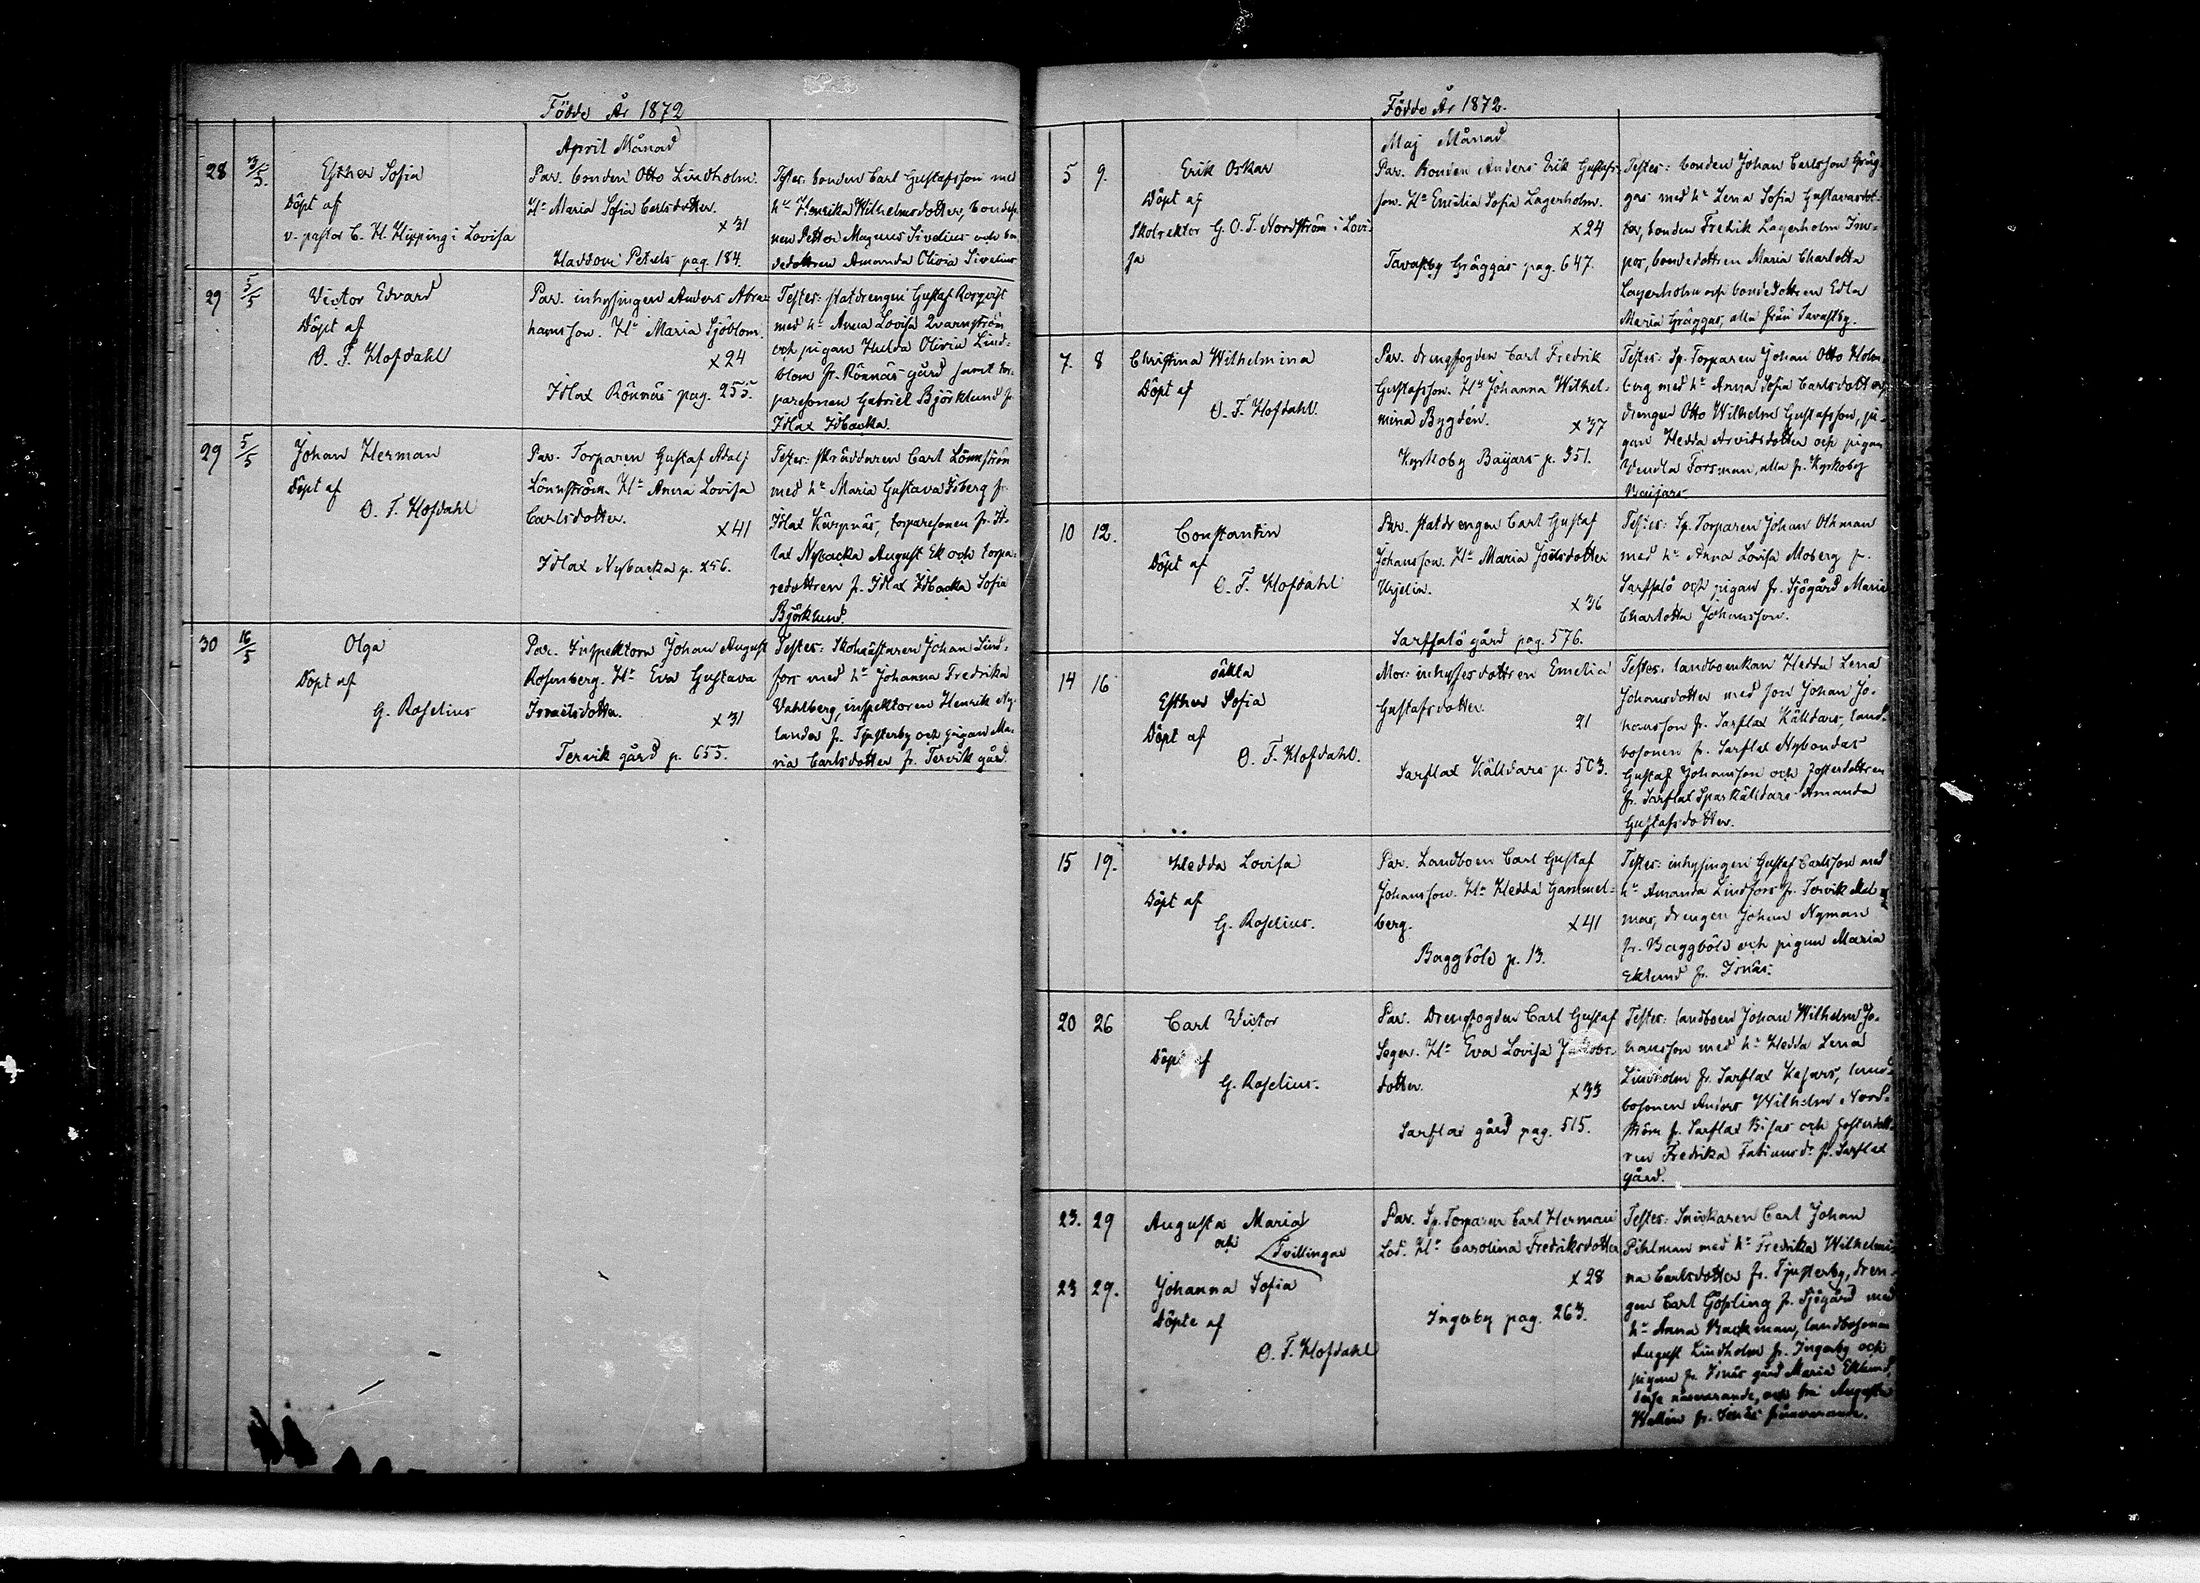 Födde År 1872
April Månad
28 3/5. Esther Sofia
Döpt af
v. pastor C. H. Hipping i Lovisa
Par. bonden Otto Lindholm.
Hu Maria Sofia Carlsdotter.
x 31
Haddom Petrels pag. 184.
Testes: bonden Carl Gustafsson med
hu Henrika Wilhelmsdotter, bondeso-
nen Petter Magnus Sivelius och bon
dedottren Amanda Olivia Sivelius
29 5/5 Victor Edvard
Döpt af
O. F. Hofdahl
Par. inhysingen Anders Abra-
hamsson. Hu Maria Sjöblom.
x 24
Idlax Rönnäs pag. 255.
Testes: statdrengen Gustaf Rosqvist
med hu Anna Lovisa Qvarnström
och pigan Hulda Olivia Lind-
blom fr. Rönnäs gård samt tor-
paresonen Gabriel Björklund fr
Idlax Idbacka.
29 5/5 Johan Herman
Döpt af
O. F. Hofdahl
Par. Torparen Gustaf Adolf
Lönnström. Hu Anna Lovisa
Carlsdotter.
x 41
Idlax Nybacka p. 256.
Testes: skräddaren Carl Lönnström
med hu Maria Gustava Isberg fr.
Idlax Kärpnäs, torparesonen fr. Id-
lax Nybacka August Ek och torpa-
redottren fr. Idlax Idbacka Sofia
Björklund.
30 16/5 Olga
Döpt af
G. Roselius
Par. Inspektorn Johan August
Rosenberg. Hu Eva Gustava
Israelsdotter.
x 31
Tervik gård p. 655.
Testes: Skomästaren Johan Lind-
fors med hu Johanna Fredrika
Vahlberg, inspektoren Henrik Ny-
lander fr. Tjusterby och pigan Ma-
ria Carlsdotter fr. Tervik gård.
Födde År 1872.
Maj Månad
5 9. Erik Oskar
Döpt af
Skolrektor G. O. T. Nordström i Lovi-
sa
Par. Bonden Anders Erik Gustafs-
son. Hu Emilia Sofia Lagerholm.
x 24
Tavastby Gräggas pag. 647.
Testes: bonden Johan Carlsson Gräg-
gas med hu Lena Sofia Gustavasdot-
ter, bonden Fredrik Lagerholm
bondedottren Maria Charlotta
Lagerholm och bondedottren Edla
Maria Gräggas, alla från Tavastby.
7. 8 Christina Wilhelmina
Döpt af
O. F. Hofdahl.
Par. drengfogden Carl Fredrik
Gustafsson. Hu Johanna Wilhel-
mina Bygdén.
x 37
Kyrkoby Baijars p. 351.
Testes: Sp. Torparen Johan Otto Holm
berg med hu Anna Sofia Carlsdotter,
drengen Otto Wilhelm Gustafsson, pi-
gan Hedda Arvidsdotter och pigan
Vendla Forsman, alla fr. Kyrkoby
Baijars
10 12. Constantin
Döpt af
O. F. Hofdahl
Par. statdrengen Carl Gustaf
Johansson. Hu Maria Joelsdotter
Urjelin.
x 36
Sarfsalö gård pag. 576.
Testes: Sp. Torparen Johan Othman
med hu Anna Lovisa Moberg fr.
Sarfsalö och pigan fr. Sjögård Maria
Charlotta Johansson.
14 16 oäkta
Esther Sofia
Döpt af
O. F. Hofdahl.
Mor: inhysesdottren Emelia
Gustafsdotter.
21
Sarflax Källdars p. 503.
Testes: landboenkan Hedda Lena
Johansdotter med son Johan Jo-
hansson fr. Sarflax Källdars, land-
bosonen fr. Sarflax Nybondas
Gustaf Johansson och fosterdottren
fr. Sarflax Sparkälldars Amanda
Gustafsdotter.
15 19. Hedda Lovisa
Döpt af
G. Roselius.
Par. Landboen Carl Gustaf
Johansson. Hu Hedda Gammel-
berg.
x 41
Baggböle p. 13.
Testes: inhysingen Gustaf Carlsson med
hu Amanda Lindfors fr. Tervik
drengen Johan Nyman
fr. Baggböle och pigan Maria
Eklund fr. Isnäs.
20 26 Carl Victor
Döpt af
G. Roselius.
Par. Drengfogden Carl Gustaf
Seger. Hu Eva Lovisa Jakobs-
dotter.
x 33
Sarflax gård pag. 515.
Testes: landboen Johan Wilhelm Jo-
hansson med hu Hedda Lena
Lindholm fr. Sarflax Kasars, land-
bosonen Anders Wilhelm Nord-
ström fr. Sarflax Bisas och fosterdott-
ren Fredrika Fabiansdr fr. Sarflax
gård.
23. 29 Augusta Maria
och Tvillingar
23 29. Johanna Sofia
Döpte af
O. F. Hofdahl
Par. Sp. Torparen Carl Herman
Lod. Hu Carolina Fredriksdotter
x 28
Ingerby pag. 263.
Testes: Snickaren Carl Johan
Pihlman med hu Fredrika Wilhelmi-
na Carlsdotter fr. Tjusterby, dren-
gen Carl Gösling fr. Sjögård med
hu Anna Backman, landbosonen
August Lindholm fr. Ingerby och
pigan fr. Isnäs gård Maria Eklund,
desse närvarande, och Augusta
Wallén fr. Isnäs frånvarande.